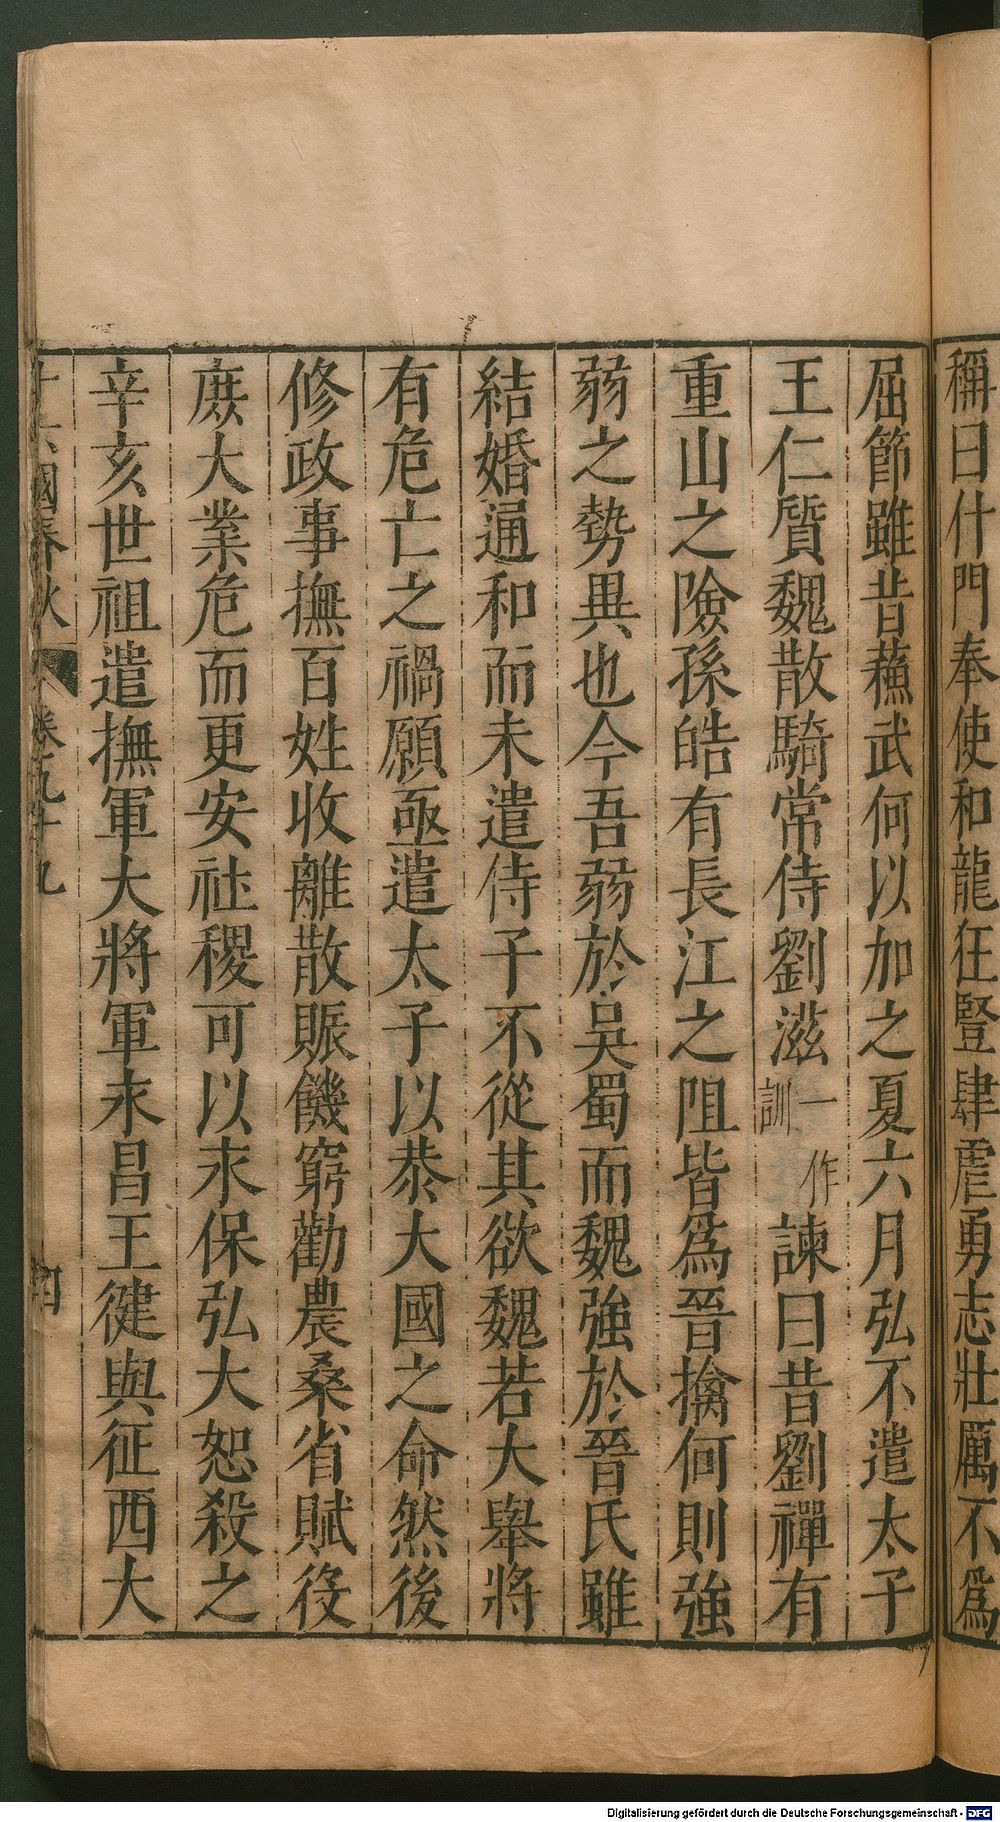 稱曰什門奉使和龍狂豎肆虐勇志壯厲不為
屈節雖昔蘇武何以加之夏六月弘不遣太子
王仁質魏散騎常侍劉滋一作訓諫曰昔劉禪有
重山之險孫皓有長江之阻皆為晉擒何則強
弱之勢異也今吾弱於吳蜀而魏強於晉氏雖
結婚通和而未遣侍子不從其欲魏若大舉將
有危亡之禍願亟遣太子以恭大國之命然後
修政事撫百姓收離散賑饑窮勸農桑省賦役
庶大業危而更安社稷可以永保弘大恕殺之
辛亥世祖遣撫軍大將軍永昌王健與征西大
十六國春秋 卷九十九 四
Digitalisierung gefördert durch die Deutsche Forschungsgemeinschaft - DFG